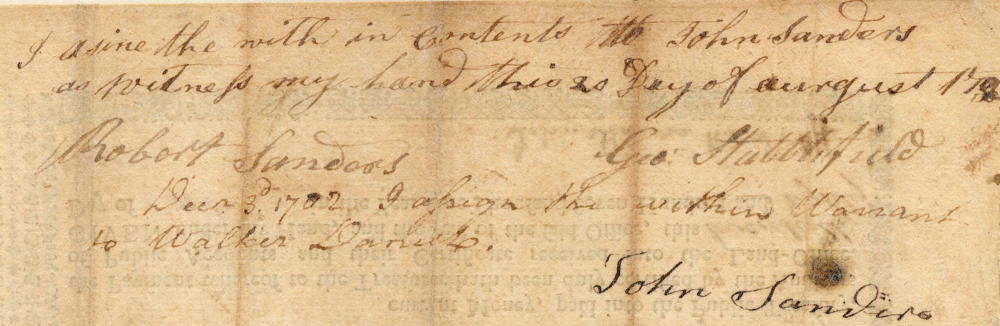 I asine the with in Contents to John Sanders
as witness my hand this 20 Day of aurgust 178
Robort Sanders Geo. Stubblefield
Decr 3d 1782 I assign the within Warrant
to Walker Daniel.
John Sanders